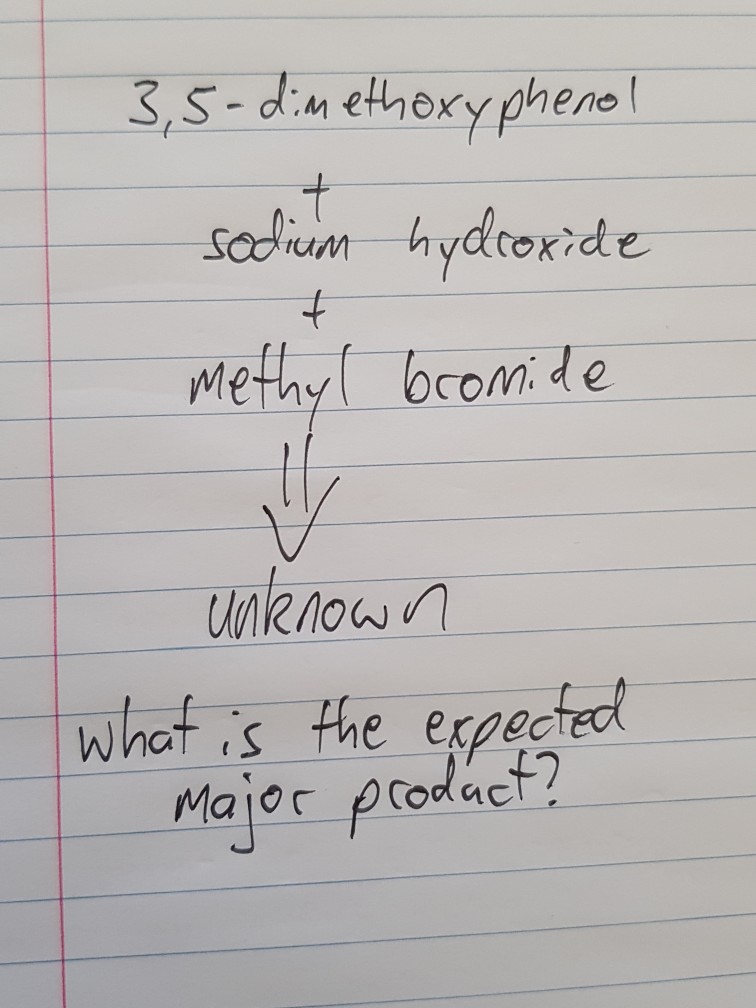 3,5-dimethoxyphenol
+
sodium hydroxide
+
methyl bromide
unknown
what is the expected
major product?